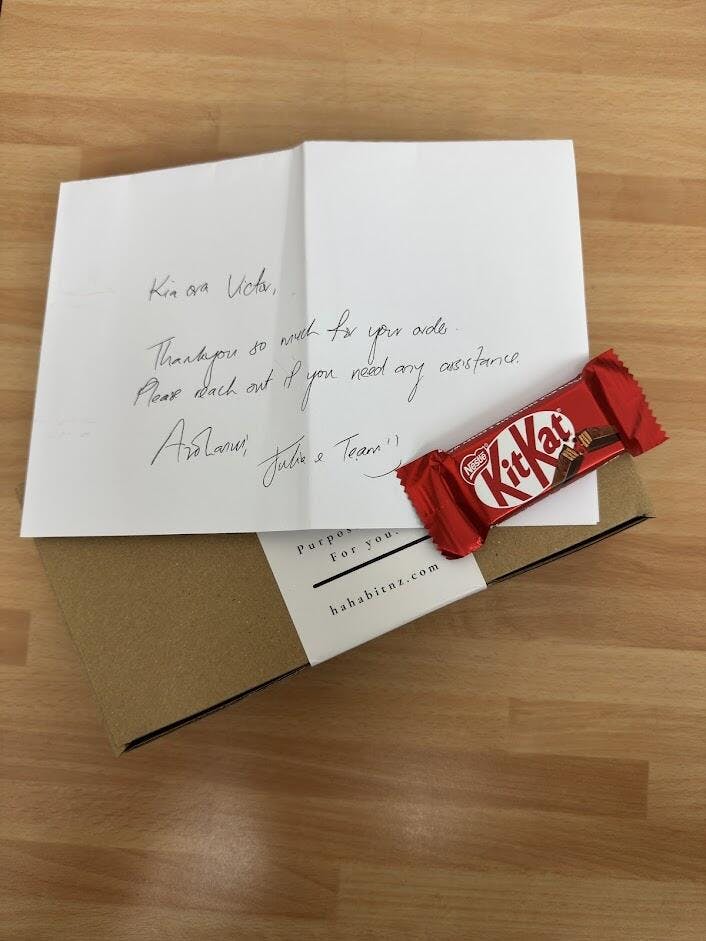 Kia ora Victor,
Thankyou so much for your order.
Please reach out if you need any assistance.
Aroha nui,
Julia & Team :)
Nestlé
KitKat
Purpos
For you.
hahabitnz.com